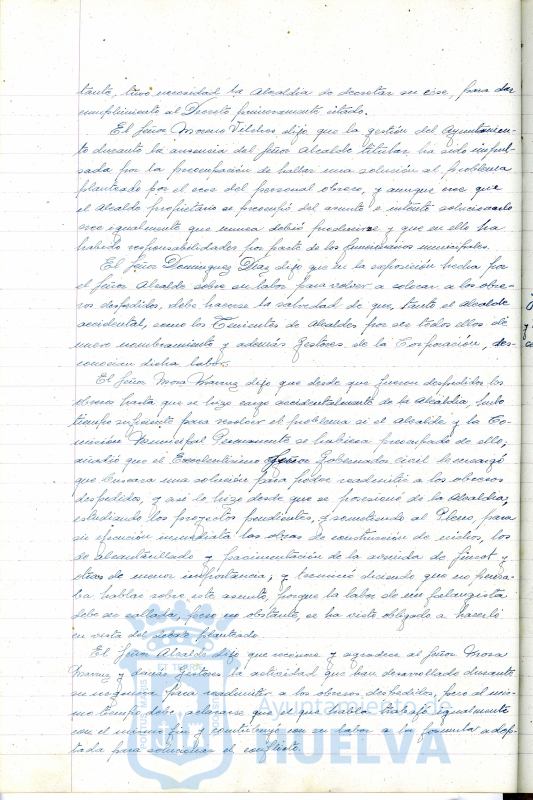 tanto, tuvo necesidad la Alcaldía de decretar su cese, para dar
cumplimiento al Decreto primeramente citado.
El Señor Moreno Vilches dijo que la gestión del Ayuntamien-
to durante la ausencia del Señor Alcalde titular ha sido impul-
sada por la preocupación de hallar una solución al problema
planteado por el cese del personal obrero, y aunque cree que
el Alcalde propietario se preocupó del asunto e intentó solucionarlo
cree igualmente que nunca debió producirse y que en ello ha
habido responsabilidades por parte de los funcionarios municipales.
El Señor Dominguez Díaz dijo que en la exposición hecha por
el Señor Alcalde sobre su labor para volver a colocar a los obre-
ros despedidos, debe hacerse la salvedad de que, tanto el Alcalde
accidental, como los Tenientes de Alcalde, por ser todos ellos de
nuevo nombramiento y además Gestores de la Corporación, des-
conocian dicha labor.
El Señor Mora dijo que desde que fueron despedidos los
obreros hasta que se hizo cargo accidentalmente de la Alcaldía, hubo
tiempo suficiente para resolver el problema si el Alcalde y la Co-
misión Municipal Permanente se hubiesen preocupado de ello;
añadió que el Excelentísimo Señor Gobernador Civil le encargó
que buscara una solución para poder readmitir a los obreros
despedidos, y así lo hizo desde que se posesionó de la Alcaldía,
estudiando los proyectos pendientes, y sometiendo al Pleno, para
su ejecución inmediata las obras de construcción de nichos, los
de alcantarillado y pavimentación de la avenida de y
otras de menor importancia; y terminó diciendo que no pensa-
ba hablar sobre este asunto, porque la labor de un falangista
debe ser callada, pero no obstante, se ha visto obligado a hacerlo
en vista del planteado.
El Señor Alcalde dijo que reconoce y agradece al Señor Mora
y demás Gestores la actividad que han desarrollado durante
su ausencia para readmitir a los obreros despedidos, pero al mis-
mo tiempo debe aclararse que él había trabajado igualmente
con el mismo fin y contribuyó con su labor a la fórmula adop-
tada para solucionar el conflicto.
Ayuntamiento de
HUELVA